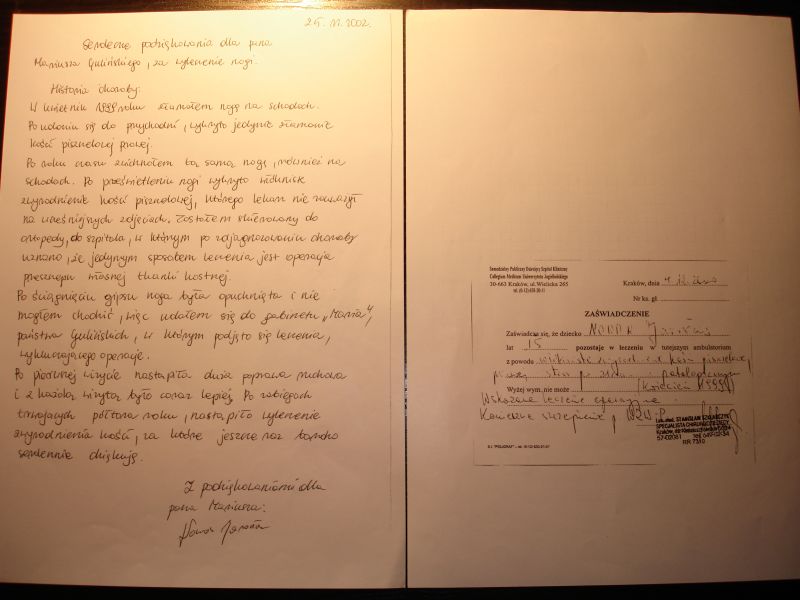 25.11.2002.
Serdeczne podziękowania dla pana
Mariusza Gulińskiego, za wyleczenie nogi.
Historia choroby:
W kwietniu 1999 roku złamałem nogę na schodach.
Po udaniu się do przychodni, wykryto jedynie złamanie
kości piszczelowej prawej.
Po roku czasu zwichnąłem tą samą nogę, również na
schodach. Po prześwietleniu nogi wykryto włóknisk
zwyrodnienie kości piszczelowej, którego lekarz nie zauważył
na wcześniejszych zdjęciach. Zostałem skierowany do
ortopedy, do szpitala, w którym po zdjagnozowaniu choroby
uznano, że jedynym sposobem leczenia jest operacja
przeszczepu własnej tkanki kostnej.
Po ściągnięciu gipsu noga była opuchnięta i nie
mogłem chodzić, więc udałem się do gabinetu „Maria",
państwa Gulińskich, w którym podjęto się leczenia,
wykluczającego operację.
Po pierwszej wizycie nastąpiła duża poprawa ruchowa
i z każdą wizytą było coraz lepiej. Po zabiegach
trwających półtora roku, nastąpiło wyleczenie
zwyrodnienia kości, za które jeszcze raz bardzo
serdecznie dziękuję.
Z podziękowaniami dla
pana Mariusza:
Samodzielny Publiczny Dziecięcy Szpital Kliniczny
Collegium Medicum Uniwersytetu Jagiellońskiego
30-663 Kraków, ul. Wielicka 265
Kraków, dnia
Nr ks. gł.
ZAŚWIADCZENIE
Zaświadcza się, że dziecko
lat 15 pozostaje w leczeniu w tutejszym ambulatorium
z powodu
Wyżej wym. nie może (kwiecień 1999)
Wskazane leczenie operacyjne
Konieczne szczepienie p/WZW
SPECJALISTA CHIRURG DZIECIĘCY